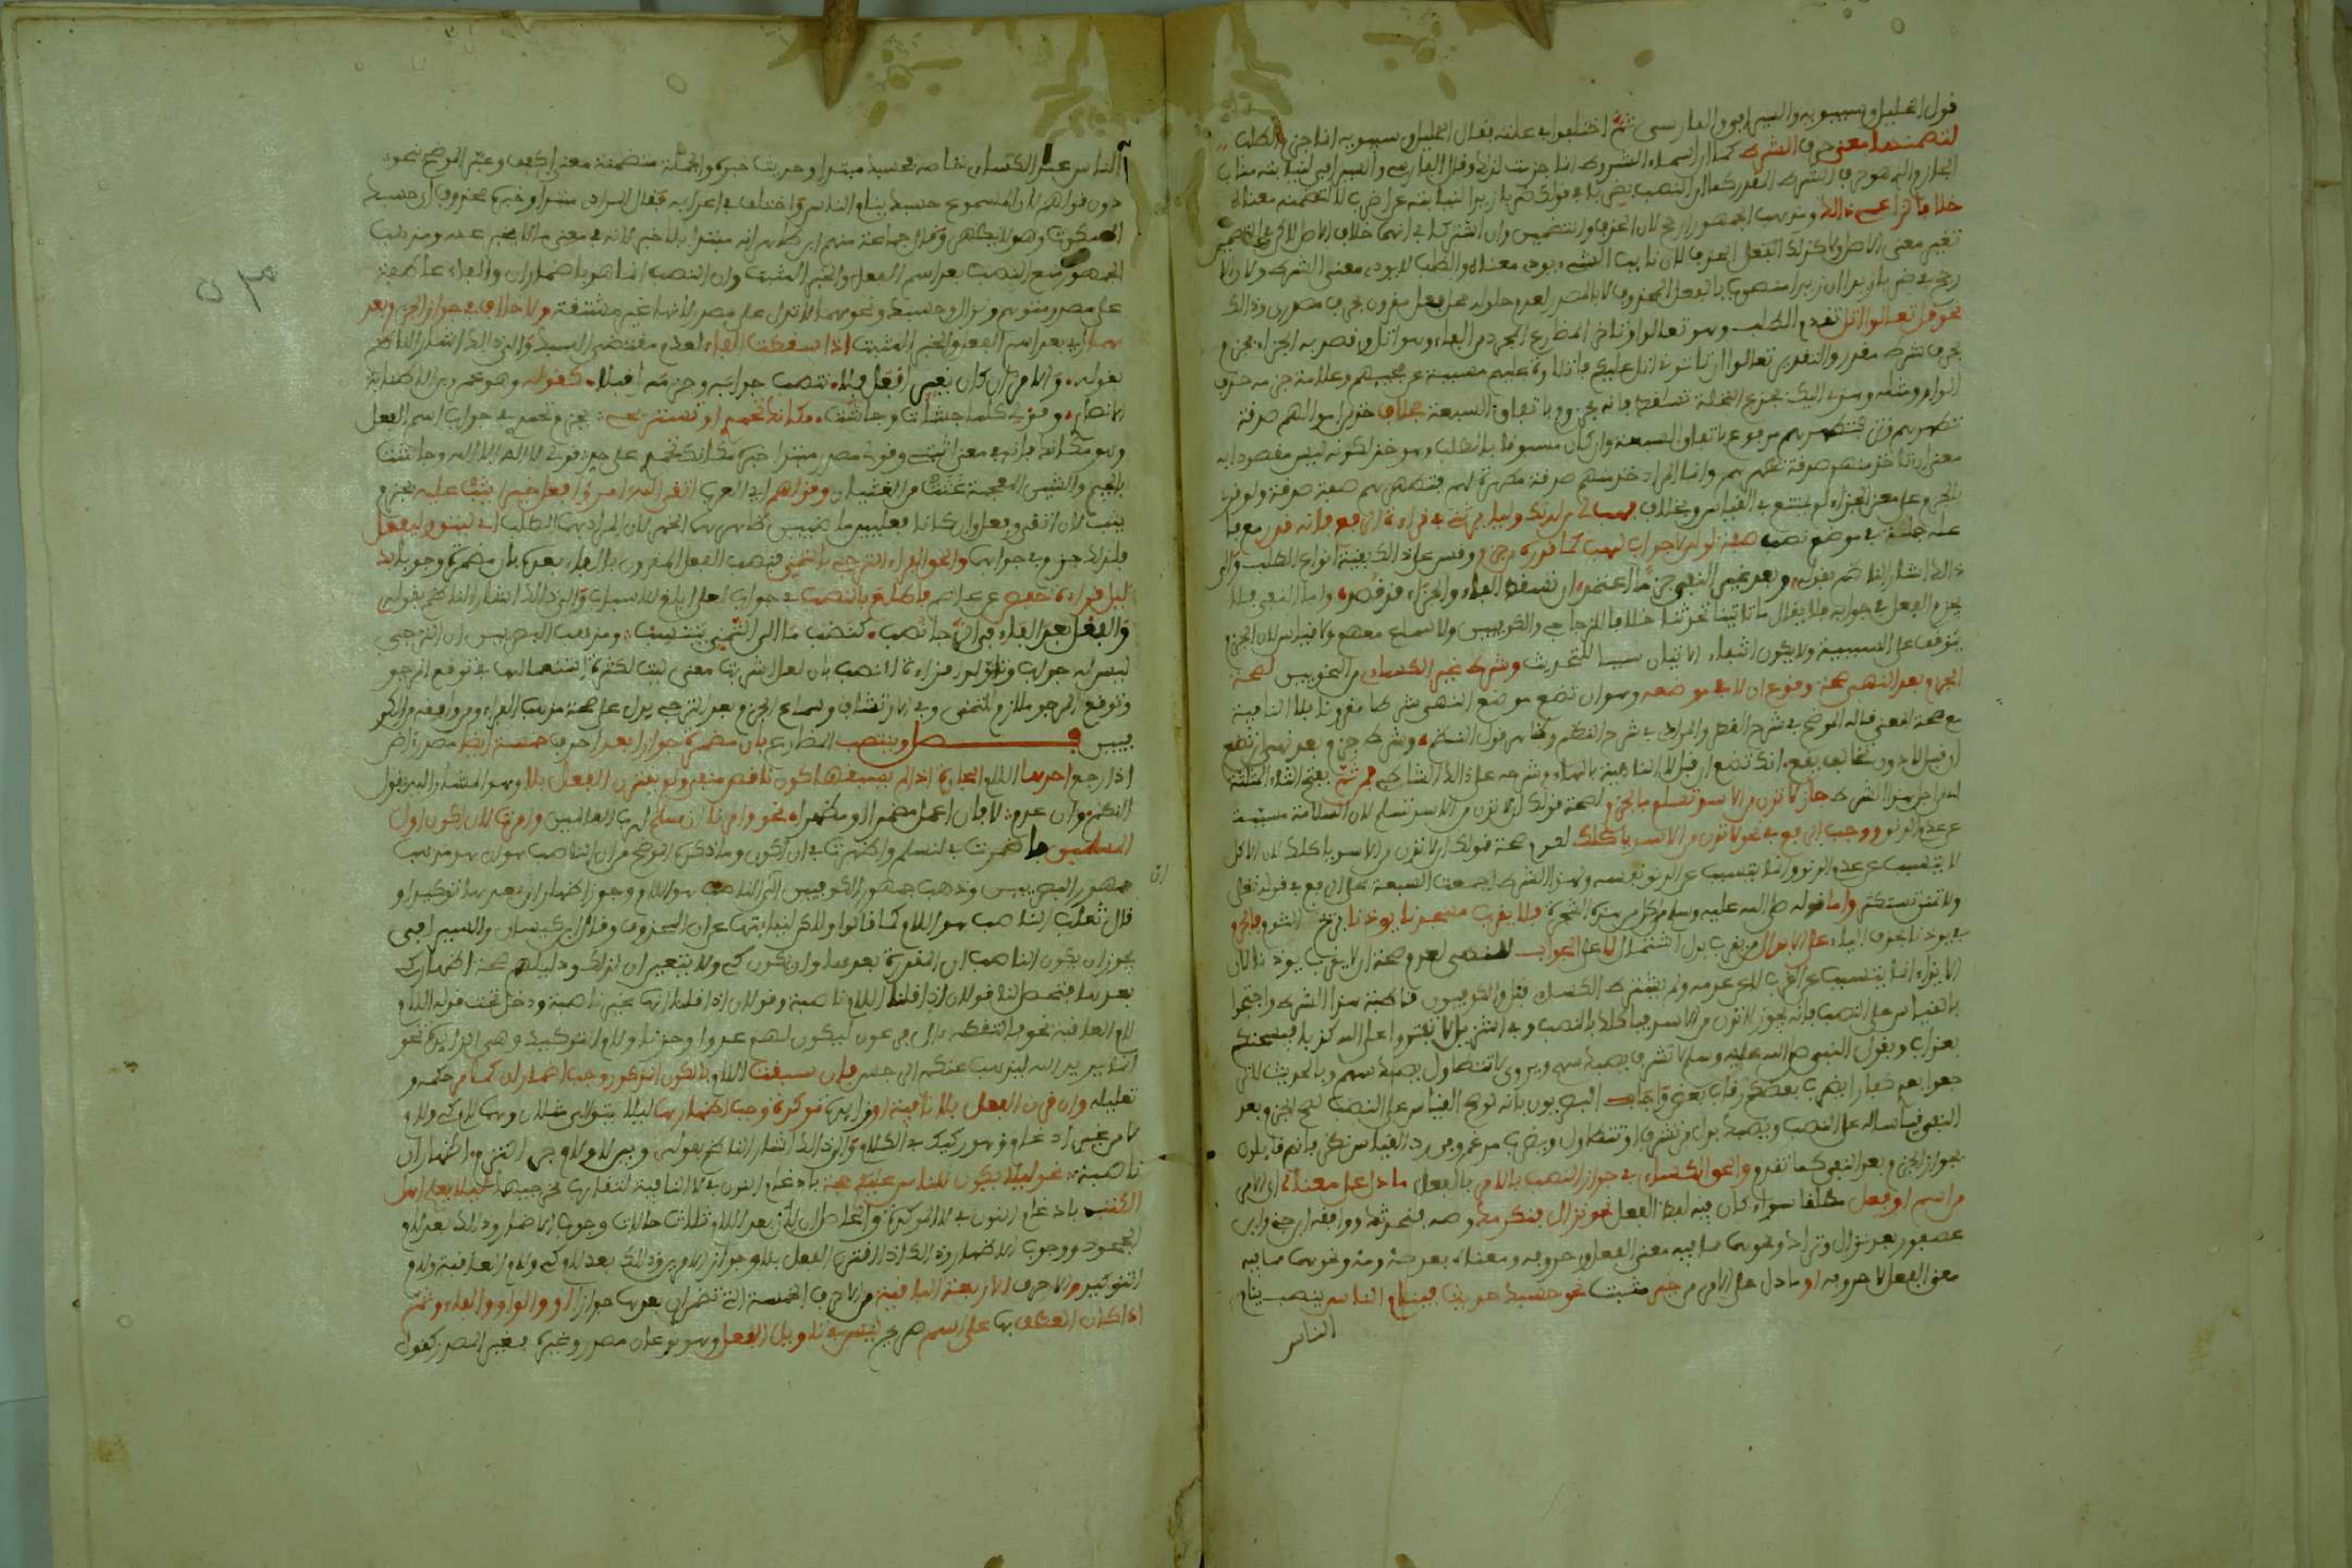 قول الخليل وسيبويه والسيرافي والفارسي ثم اختلفوا في علته فقال الخليل وسيبويه انما جزم الطلب
لتضمنه معنى حرف الشرط كما ان اسماء الشرط انما جزمت لذلك وقال الفارسي والسيرافي لنيابته مناب
الجازم الذي هو حرف الشرط المقدر كما ان النصب بضربا في قولك ضربا زيدا لنيابته عن اضرب لا لتضمنه معناه
خلافا لزاعمي ذلك ومذهب الجمهور ارجح لان الحذف والتضمين وان اشتركا في انهما خلاف الاصل لاكن في التضمين
تغيير معنى الاصل ولا كذلك الحذف لان نائب الشيء يودي معناه والطلب لا يودي معنى الشرط ولان الا
رجح في ضربا زيدا ان زيدا منصوب بالفعل المحذوف لا بالمصدر لعدم حلوله محل فعل مقرون بحرف مصدري وذلك
نحو قل تعالوا اتل تقدم الطلب وهو تعالوا وتاخر المضارع المجرد من الفاء وهو اتل وقصد به الجزاء فجزم
بحرف شرط مقدر والتقدير تعالوا ان تاتوني اتل عليكم فالتلاوة عليهم مسببة عن مجيئهم وعلامة جزمه حذف
الواو ومثله وهزي اليك بجذع النخلة تساقط فانه مجزوم باتفاق السبعة بخلاف خذ من اموالهم صدقة
تطهرهم وتزكيهم فتطهرهم مرفوع باتفاق السبعة وان كان مسبوقا بالطلب وهو خذ لكونه ليس مقصودا به
معنى ان تاخذ منهم صدقة تطهرهم وانما اريد خذ منهم صدقة مطهرة لهم فتطهرهم صفة صدقة ولو قرئ
بالجزم على معنى الجزاء لم يمتنع في القياس وبخلاف فهب لي من لدنك وليا يرثني في قراءة الرفع فانه قدر مع فا
عله جملة في موضع نصب صفة لوليا لا جواب لهب كما قدره من جزم وقس على ذلك بقية انواع الطلب والى
ذلك اشار الناظم بقوله وبعد غير النفي جزما اعتمد ان تسقط الفاء والجزاء قد قصد واما النفي فلا
يجزم الفعل في جوابه فلا يقال ما تاتينا تحدثنا خلافا للزجاجي والكوفيين ولا سماع معهم ولا قياس لان الجزم
يتوقف على السببية ولا يكون انتفاء الاتيان سببا للتحديث وشرط غير الكسائي من النحويين لصحة
الجزم بعد النهي صحة وقوع ان لا في موضعه وهو ان تضع موضع النهي شرطا مقرونا بلا النافية
مع صحة المعنى قاله الموضح في شرح القطر والمرادي في شرح النظم وظاهر قول النظم وشرط جزم بعد نهي ان تضع
ان قبل لا دون تخالف يقع انك تضع ان قبل لا الناهية بالهاء وشرحه على ذلك الشاطبي فمن ثم بفتح الثاء المثلثة
اي من اجل هذا الشرط جاز لا تدن من الاسد تسلم بالجزم لصحة قولك ان لا تدن من الاسد تسلم لان السلامة مسببة
عن عدم الدنو ووجب الرفع في نحو لا تدن من الاسد ياكلك لعدم صحة قولك ان لا تدن من الاسد ياكلك لان الاكل
لا يتسبب عن عدم الدنو وانما يتسبب عن الدنو نفسه ولهذا الشرط اجمعت السبعة على الرفع في قوله تعالى
ولا تمنن تستكثر واما قوله صلى الله عليه وسلم من اكل من هذه الشجرة فلا يقرب مسجدنا يوذنا بريح الثوم فالجزم
في يوذنا بحذف الياء على الابدال من يقرب بدل اشتمال لا على الجواب للنهي لعدم صحة ان لا يقرب يوذنا لان
الايذاء انما يتسبب عن القرب لا عن عدمه ولم يشترط الكسائي قيل والكوفيون قاطبة هذا الشرط واحتجوا
بالقياس على النصب فانه يجوز لا تدن من الاسد فياكلك بالنصب وفي التنزيل لا تفتروا على الله كذبا فيسحتكم
بعذاب وبقول النبي صلى الله عليه وسلم لا تشرف يصبك سهم ويروى لا تتطاول يصبك سهم وبالحديث لا تر
جعوا بعدي كفارا يضرب بعضكم رقاب بعض واجاب البصريون بانه لو صح القياس على النصب لصح الجزم بعد
النفي قياسا له على النصب ويصبك بدل من تشرف او تتطاول ويضرب مدغم وفي رد القياس نظر فانهم قايلون
بجواز الجزم بعد النفي كما تقدم والحق الكسائي في جواز النصب بالامر بالفعل ما دل على معناه اي الامر
من اسم او فعل مطلقا سواء كان فيه لفظ الفعل نحو نزال فنكرمك وصه فنحدثك ووافقه ابن جني وابن
عصفور بعد نزال وتراك ونحوهما مما فيه معنى الفعل وحروفه ومعناه بعد صه ومه ونحوهما مما فيه
معنى الفعل لا حروفه او ما دل على الامر من خبر مثبت نحو حسبك حديث فينام الناس ينصب ينام
الناس
٥٣
الناس عند الكسائي خاصة فحسبك مبتدا وحديث خبره والجملة متضمنة معنى اكفف وعبر الموضح بنحو
دون قولهم لان المسموع حسبك ينام الناس واختلف في اعرابه فقال المرادي مبتدا وخبره محذوف اي حسبك
السكوت وهو لا يظهر وقال جماعة منهم ابن طاهر انه مبتدا بلا خبر لانه في معنى ما لا يخبر عنه ومذهب
الجمهور منع النصب بعد اسم الفعل والخبر المثبت وان النصب انما هو باضمار ان والفاء عاطفة
على مصدر متوهم ونزال وحسبك ونحوهما لا تدل على مصدر لانها غير مشتقة ولا خلاف في جواز الجزم بعد
هما اي بعد اسم الفعل والخبر المثبت اذا سقطت الفاء لعدم مقتضى السبك والى ذلك اشار الناظم
بقوله والامر ان كان بغير افعل فلا تنصب جوابه وجزمه اقبلا كقوله وهو عمرو بن الاطنابة
الانصاري وقولي كلما جشات وجاشت مكانك تحمدي او تستريحي فجزم تحمدي في جواب اسم الفعل
وهو مكانك فانه في معنى اثبتي وقولي مصدر مبتدا خبره مكانك تحمدي على حد قولي لا اله الا الله وجاشت
بالجيم والشين المعجمة غثت من الغثيان وقولهم اي العرب اتقى الله امرؤ فعل خيرا يثب عليه بجزم
يثب لان اتقى وفعل وان كانا فعلين ماضيين ظاهرهما الخبر لان المراد بهما الطلب اي ليتق وليفعل
فلذلك جزم في جوابهما والحق الفراء الترجي بالتمني فنصب الفعل المقرون بالفاء بعده بان مضمرة وجوبا بد
ليل قراءة حفص عن عاصم فاطلع بالنصب في جواب لعلي ابلغ الاسباب والى ذلك اشار الناظم بقوله
والفعل بعد الفاء في الرجا نصب كنصب ما الى التمني ينتسب ومذهب البصريين ان الترجي
ليس له جواب وتاولوا قراءة النصب بان لعل اشربت معنى ليت لكثرة استعمالها في توقع المرجو
وتوقع المرجو ملازم للتمني وفي الارتشاف وسماع الجزم بعد الترجي يدل على صحة مذهب الفراء ومن وافقه من الكو
فيين فصل وينتصب المضارع بان مضمرة جوازا بعد احرف خمسة ايضا مصدر اض
اذا رجع احدها اللام الجارة اذا لم يسبقها كون ناقص منفي ولم يقترن الفعل بلا وهو المشار اليه بقول
النظم وان عدم لا فان اعمل مضمرا او مظهرا نحو وامرنا لنسلم لرب العالمين وامرت لان اكون اول
المسلمين فاضمرت في لنسلم واظهرت في لان اكون وما ذكره الموضح من ان الناصب هو ان هو مذهب
جمهور البصريين وذهب جمهور الكوفيين الى ان الناصب هو اللام وجوز اظهار ان بعدها توكيدا و
قال ثعلب الناصب هو اللام كما قالوا ولكن لنيابتها عن ان المحذوفة وقال ابن كيسان والسيرافي
يجوز ان يكون الناصب ان المقدرة بعدها وان يكون كي ولا يتعين ان لذلك ودليلهم صحة اظهار كي
بعدها فتحصلنا قولان اذا قلنا اللام ناصبة وقولان اذا قلنا انها غير ناصبة ودخل تحت قوله اللام
لام العاقبة نحو فالتقطه ال فرعون ليكون لهم عدوا وحزنا ولام التوكيد وهي الزايدة نحو
انما يريد الله ليذهب عنكم الرجس فان سبقت اللام بالكون المذكور وجب اضمار ان كما مر حكمه و
تعليله وان قرن الفعل بلا نافية او زايدة موكدة وجب اظهارها ليلا يتوالى مثلان وهما لام كي ولام
لا من غير ادغام وهو ركيك في الكلام والى ذلك اشار الناظم بقوله وبين لا ولام جر التزم اظهار ان
ناصبة نحو ليلا يكون للناس عليكم حجة بادغام النون في لا النافية لتقارب مخرجيهما ليلا يعلم اهل
الكتاب بادغام النون في لا الموكدة والحاصل ان لان بعد اللام ثلاث حالات وجوب الاضمار وذلك بعد لام
الجحود ووجوب الاظهار وذلك اذا اقترن الفعل بلا وجواز الامرين وذلك بعد لام كي ولام العاقبة ولام
التوكيد والاحرف الاربعة الباقية من الاحرف الخمسة التي تضمر ان بعدها جوازا او والواو والفاء وثم
اذا كان العطف بها على اسم صريح ليس في تاويل الفعل وهو نوعان مصدر وغيره فغير المصدر كقولك